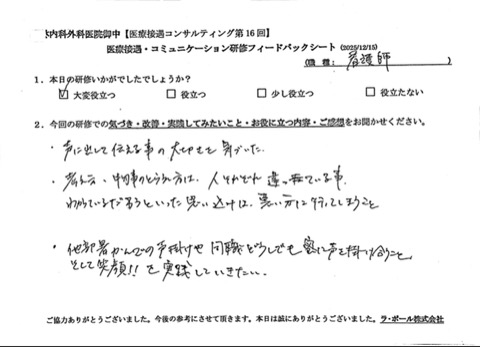 内科外科医院御中【医療接遇コンサルティング第16回】
医療接遇・コミュニケーション研修フィードバックシート (2025/12/15)
(職種: 看護師 )
1. 本日の研修いかがでしたでしょうか?
☑ 大変役立つ □ 役立つ □ 少し役立つ □ 役立たない
2. 今回の研修での気づき・改善・実践してみたいこと・お役に立つ内容・ご感想をお聞かせください。
・声に出して伝える事の大切さを気づいた。
・考え方、物事のとらえ方は、人それぞれ違っている事、
わかっているだろうといった思い込みは、悪い方に行ってしまうこと
・他部署かんでの声掛けや同職どうしでも密に声を掛け合うこと、
そして笑顔!!を実践していきたい。
ご協力ありがとうございました。今後の参考にさせて頂きます。本日は誠にありがとうございました。ラ・ポール株式会社